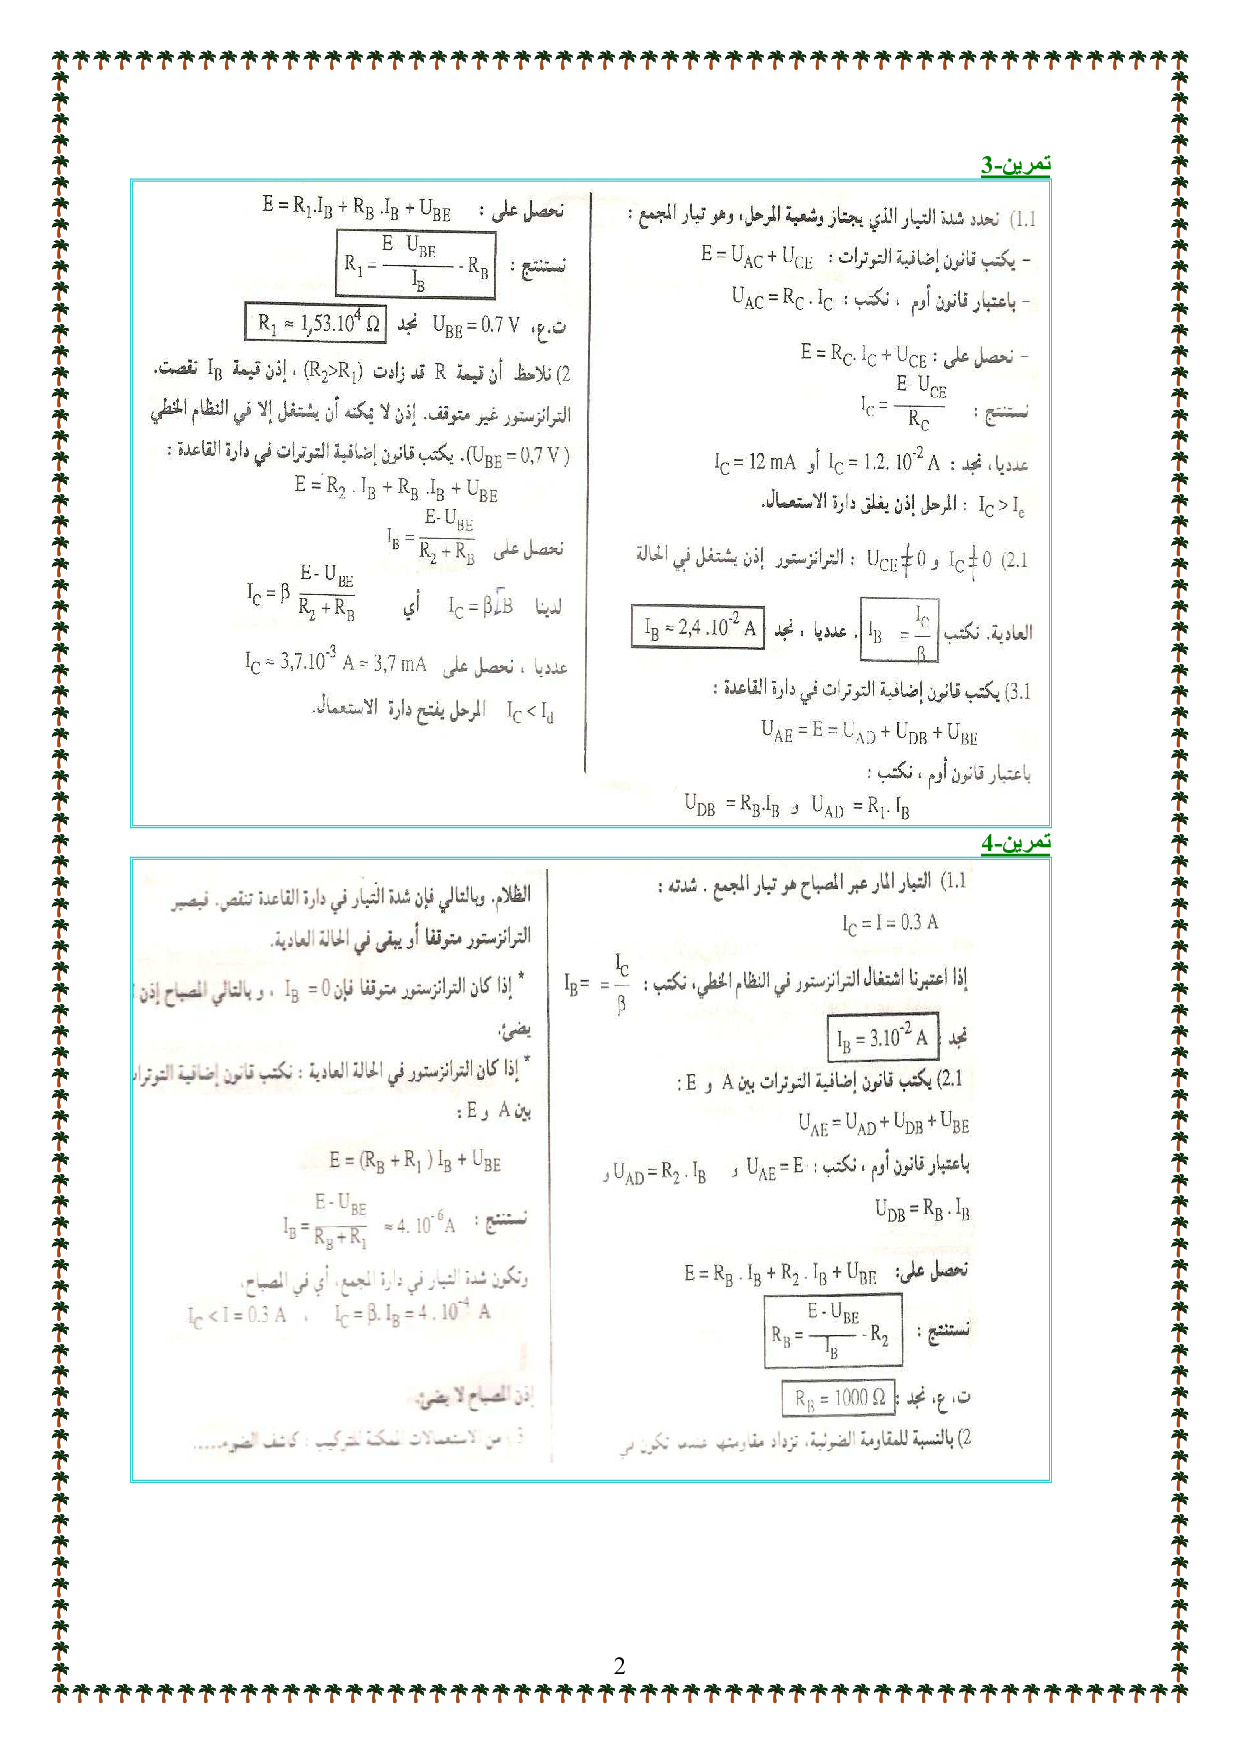 تمرين-3
1.1) نحدد شدة التيار الذي يجتاز وشعية المرحل، وهو تيار المجمع :
- يكتب قانون إضافية التوترات : E = UAC + UCE
- باعتبار قانون أوم ، نكتب : UAC = RC . IC
- نحصل على : E = RC. IC + UCE
نستنتج : IC = E UCE / RC
عدديا، نجد : IC = 1.2. 10-2 A أو IC = 12 mA
IC > Ie : المرحل إذن يغلق دارة الاستعمال.
2.1) IC ≠ 0 و UCE ≠ 0 : الترانزستور إذن يشتغل في الحالة
العادية. نكتب IB = IC / β . عدديا ، نجد IB ≈ 2,4 .10-2 A
3.1) يكتب قانون إضافية التوترات في دارة القاعدة :
UAE = E = UAD + UDB + UBE
باعتبار قانون أوم ، نكتب :
UAD = R1. IB و UDB = RB.IB
نحصل على : E = R1.IB + RB .IB + UBE
نستنتج : R1 = E UBE / IB - RB
ت.ع، UBE = 0.7 V نجد R1 ≈ 1,53.104 Ω
2) نلاحظ أن قيمة R قد زادت (R2>R1) ، إذن قيمة IB نقصت.
الترانزستور غير متوقف. إذن لا يمكنه أن يشتغل إلا في النظام الخطي
(UBE = 0,7 V). يكتب قانون إضافية التوترات في دارة القاعدة :
E = R2 . IB + RB .IB + UBE
نحصل على IB = E- UBE / R2 + RB
لدينا IC = βIB أي IC = β E- UBE / R2 + RB
عدديا ، نحصل على IC ≈ 3,7.10-3 A ≈ 3,7 mA
IC < Id المرحل يفتح دارة الاستعمال.
تمرين-4
1.1) التيار المار عبر المصباح هو تيار المجمع . شدته :
IC = I = 0.3 A
إذا اعتبرنا اشتغال الترانزستور في النظام الخطي، نكتب : IB= = IC / β
نجد : IB = 3.10-2 A
2.1) يكتب قانون إضافية التوترات بين A و E :
UAE = UAD + UDB + UBE
باعتبار قانون أوم ، نكتب : UAE = E و UAD = R2 . IB و
UDB = RB . IB
نحصل على: E = RB . IB + R2 . IB + UBE
نستنتج : RB = E - UBE / IB - R2
ت. ع، نجد : RB = 1000 Ω
2) بالنسبة للمقاومة الضوئية، تزداد مقاومتها عندما تكون في
الظلام. وبالتالي فإن شدة التيار في دارة القاعدة تنقص. فيصير
الترانزستور متوقفا أو يبقى في الحالة العادية.
* إذا كان الترانزستور متوقفا فإن IB = 0 ، و بالتالي المصباح إذن
يضئ.
* إذا كان الترانزستور في الحالة العادية : نكتب قانون إضافية التوترات
بين A و E :
E = (RB + R1 ) IB + UBE
نستنتج : IB = E - UBE / RB + R1 ≈ 4. 10-6 A
وتكون شدة التيار في دارة المجمع، أي في المصباح.
IC = β. IB = 4 . 10-4 A ، IC < I = 0.3 A
إذن المصباح لا يضئ.
3 . من الاستعمالات الممكنة للتركيب : كاشف الضوء.....
2